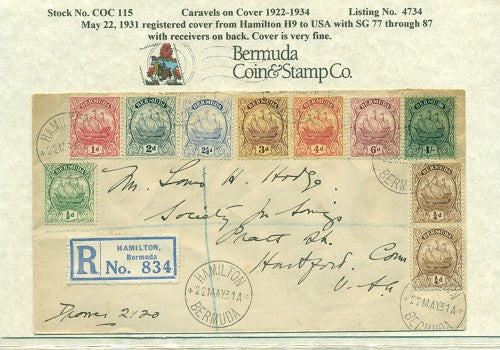 Stock No. COC 115 Caravels on Cover 1922-1934 Listing No. 4734
May 22, 1931 registered cover from Hamilton H9 to USA with SG 77 through 87
with receivers on back. Cover is very fine.
Bermuda
Coin&Stamp Co.
BERMUDA BERMUDA BERMUDA BERMUDA BERMUDA BERMUDA BERMUDA
1d 2d 2½d 3d 4d 6d 1/-
HAMILTON
BERMUDA
½d
Mr. Louis H. Hodge
Society for Savings
Pratt St.
Hartford, Conn
U.S.A
BERMUDA
BERMUDA
¼d
HAMILTON,
Bermuda
R No. 834
HAMILTON
22 MAY 31 A
BERMUDA
2120